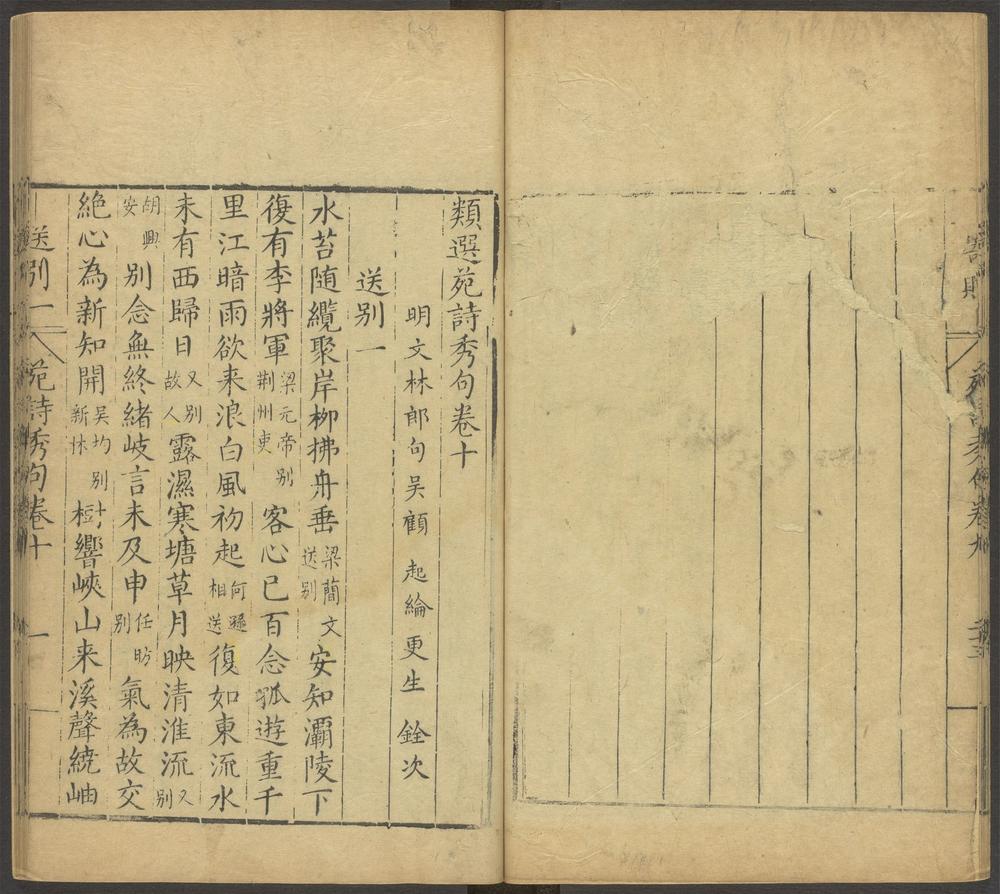 類選苑詩秀句卷十
明文林郎句吳顧起綸更生銓次
送別一
水苔随纜聚岸栁拂舟垂梁蕳文送别安知灞陵下
復有李將軍梁元帝别荆州吏客心已百念孤遊重千
里江暗雨欲来浪白風初起何遜相送復如東流水
未有西歸日又别故人露濕寒塘草月映清淮流又别
胡興安别念無終緒岐言未及申任昉别氣為故交
絶心為新知開吳均别新林樹響峽山来溪聲繞岫
送别一
苑詩秀句卷十
一